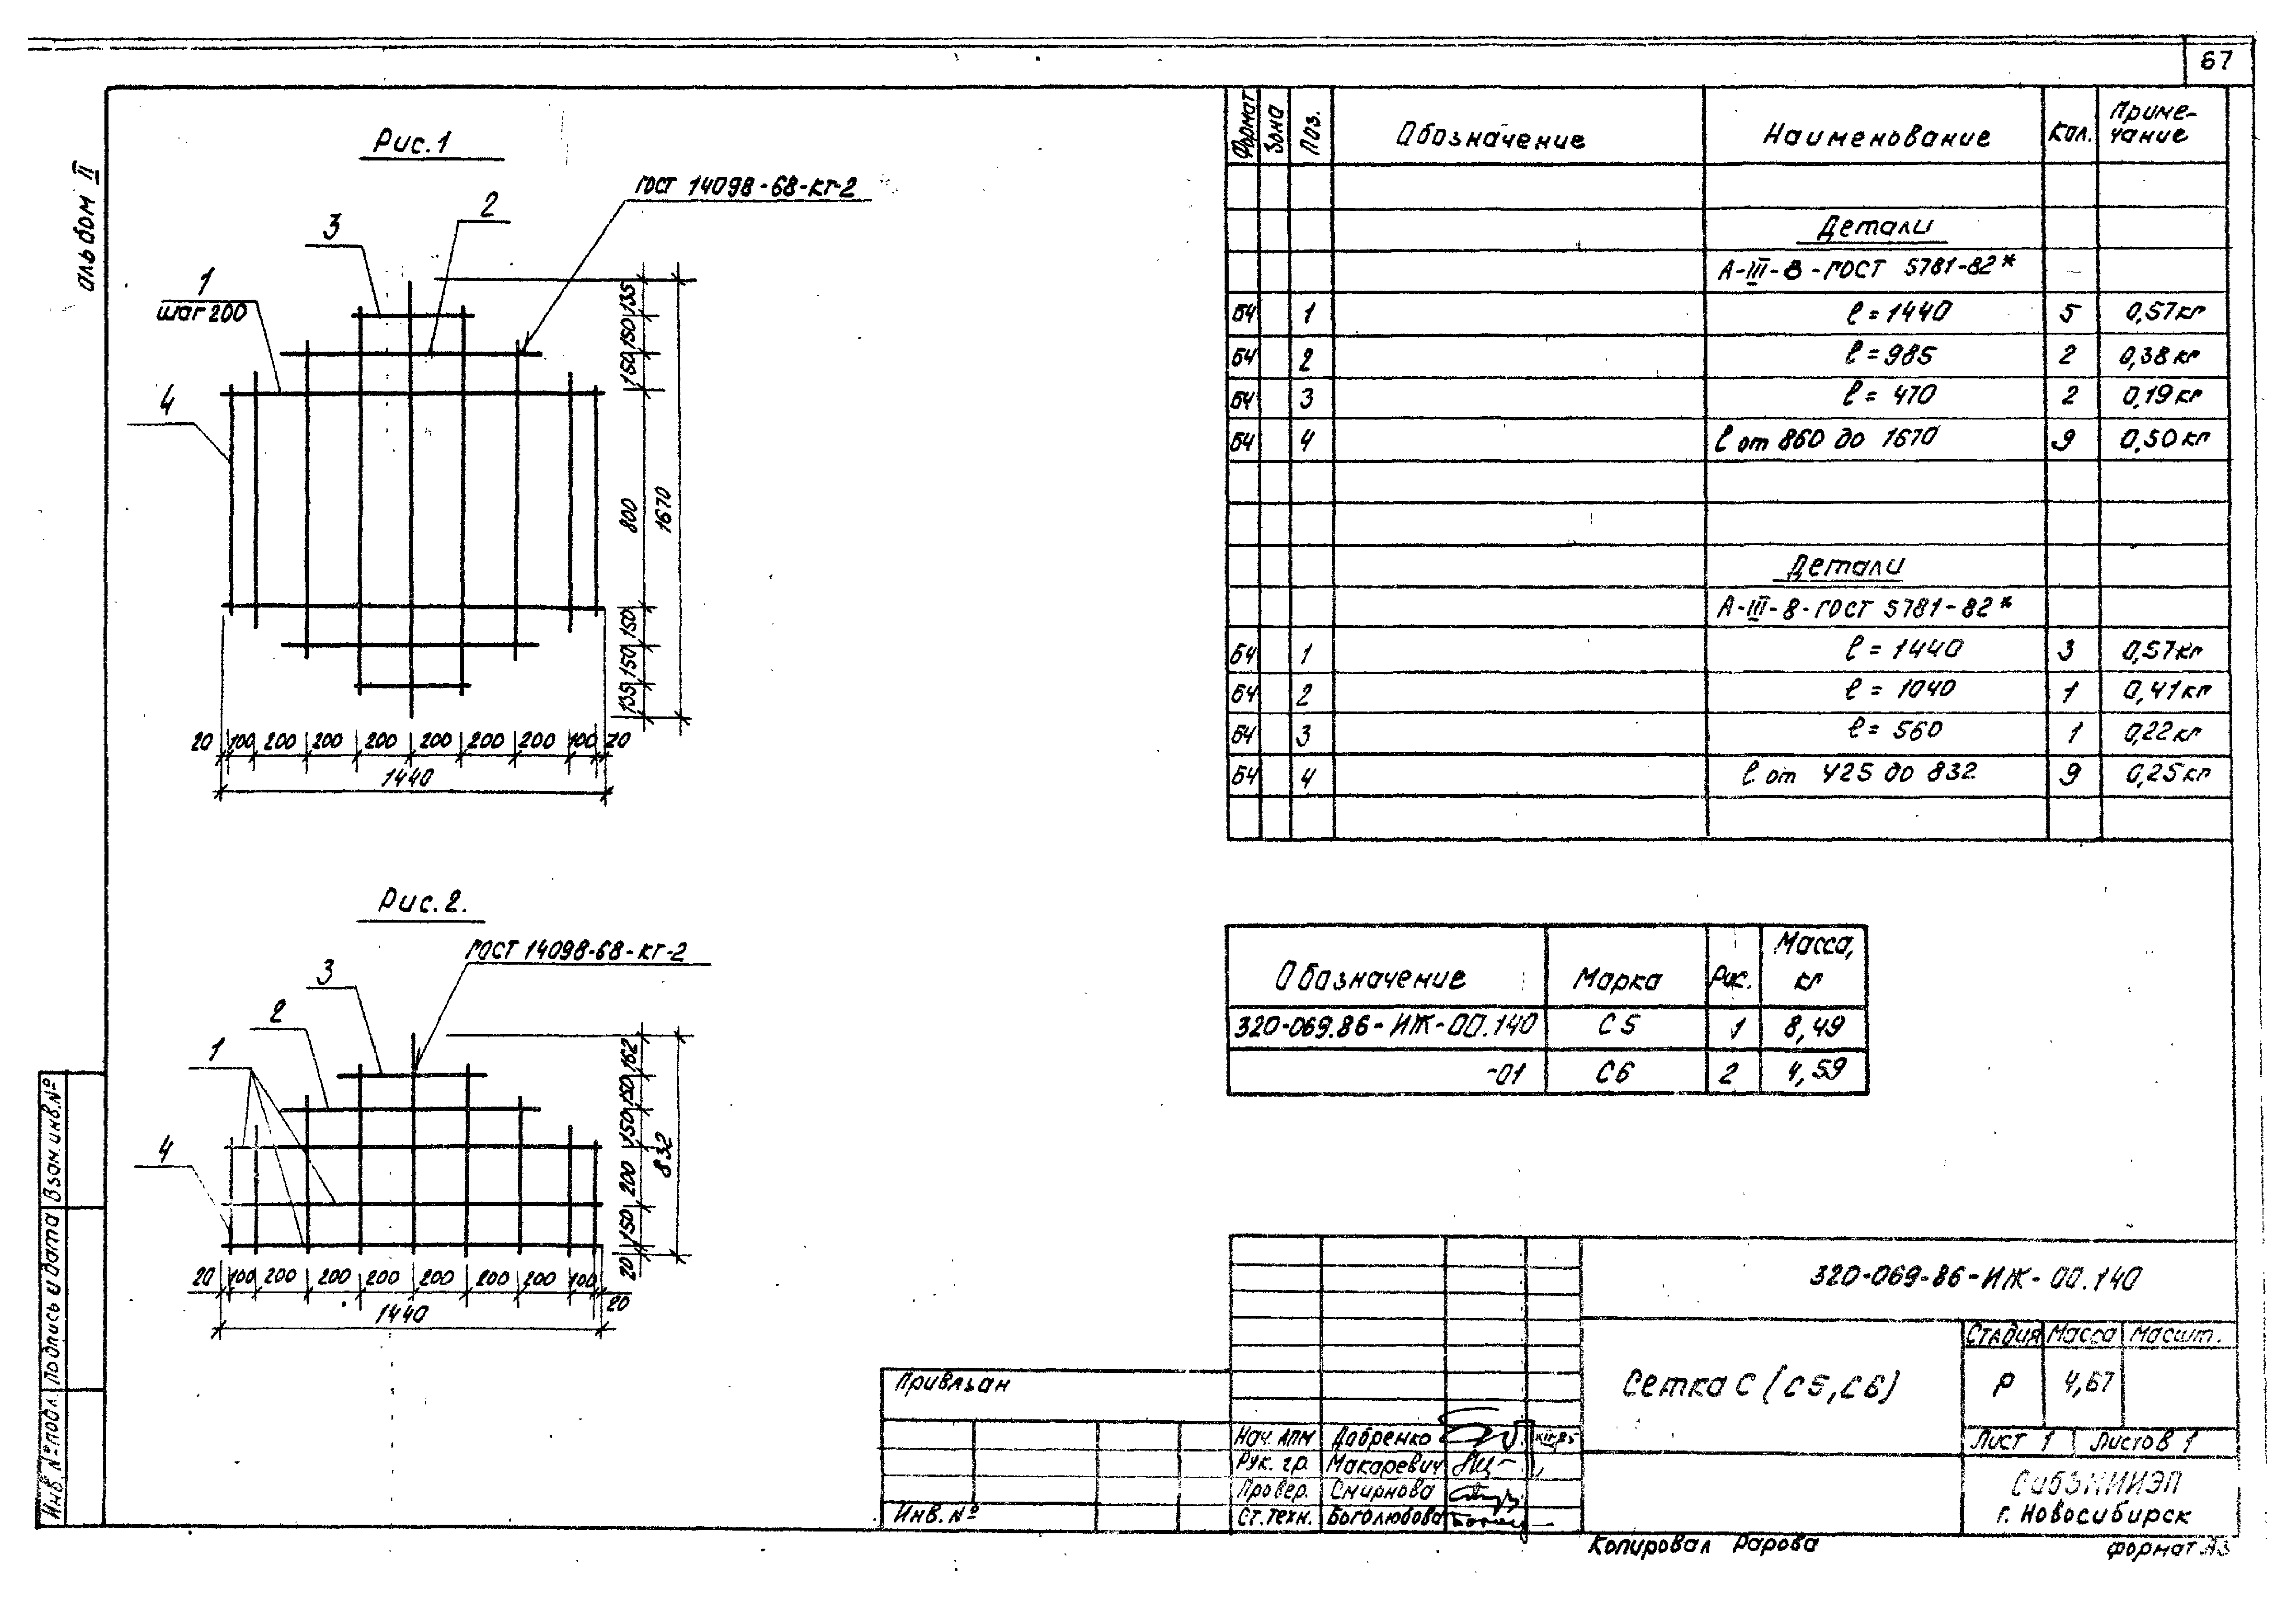 67
альбом II
Рис.1
ГОСТ 14098-68-кт-2
3
2
1
шаг 200
4
135
150
150
800
1670
150
150
135
20 100 200 200 200 200 200 200 100 20
1440
Рис. 2.
ГОСТ 14098-68-кт-2
3
2
1
4
162
150
150
200
150
20
832
20 100 200 200 200 200 200 200 100 20
1440
Формат Зона Поз. Обозначение Наименование Кол. Приме-
чание
Детали
А-III-8-ГОСТ 5781-82*
БЧ 1 ℓ = 1440 5 0,57кг
БЧ 2 ℓ = 985 2 0,38кг
БЧ 3 ℓ = 470 2 0,19кг
БЧ 4 ℓ от 860 до 1670 9 0,50кг
Детали
А-III-8-ГОСТ 5781-82*
БЧ 1 ℓ = 1440 3 0,57кг
БЧ 2 ℓ = 1040 1 0,41кг
БЧ 3 ℓ = 560 1 0,22кг
БЧ 4 ℓ от 425 до 832 9 0,25кг
Обозначение Марка Рис. Масса,
кг
320-069.86-ИЖ-00.140 С5 1 8,49
-01 С6 2 4,59
320-069-86-ИЖ-00.140
Сетка С (С5,С6)
Стадия Масса Масшт.
Р 4,67
Лист 1 Листов 1
СибЗНИИЭП
г. Новосибирск
Привязан
Инв. №
Нач. АПМ Добренко XII-85
Рук. гр. Макаревич
Провер. Смирнова
Ст. техн. Боголюбова
Копировал Рарова
формат А3
Взам. инв. №
Подпись и дата
Инв. № подл.